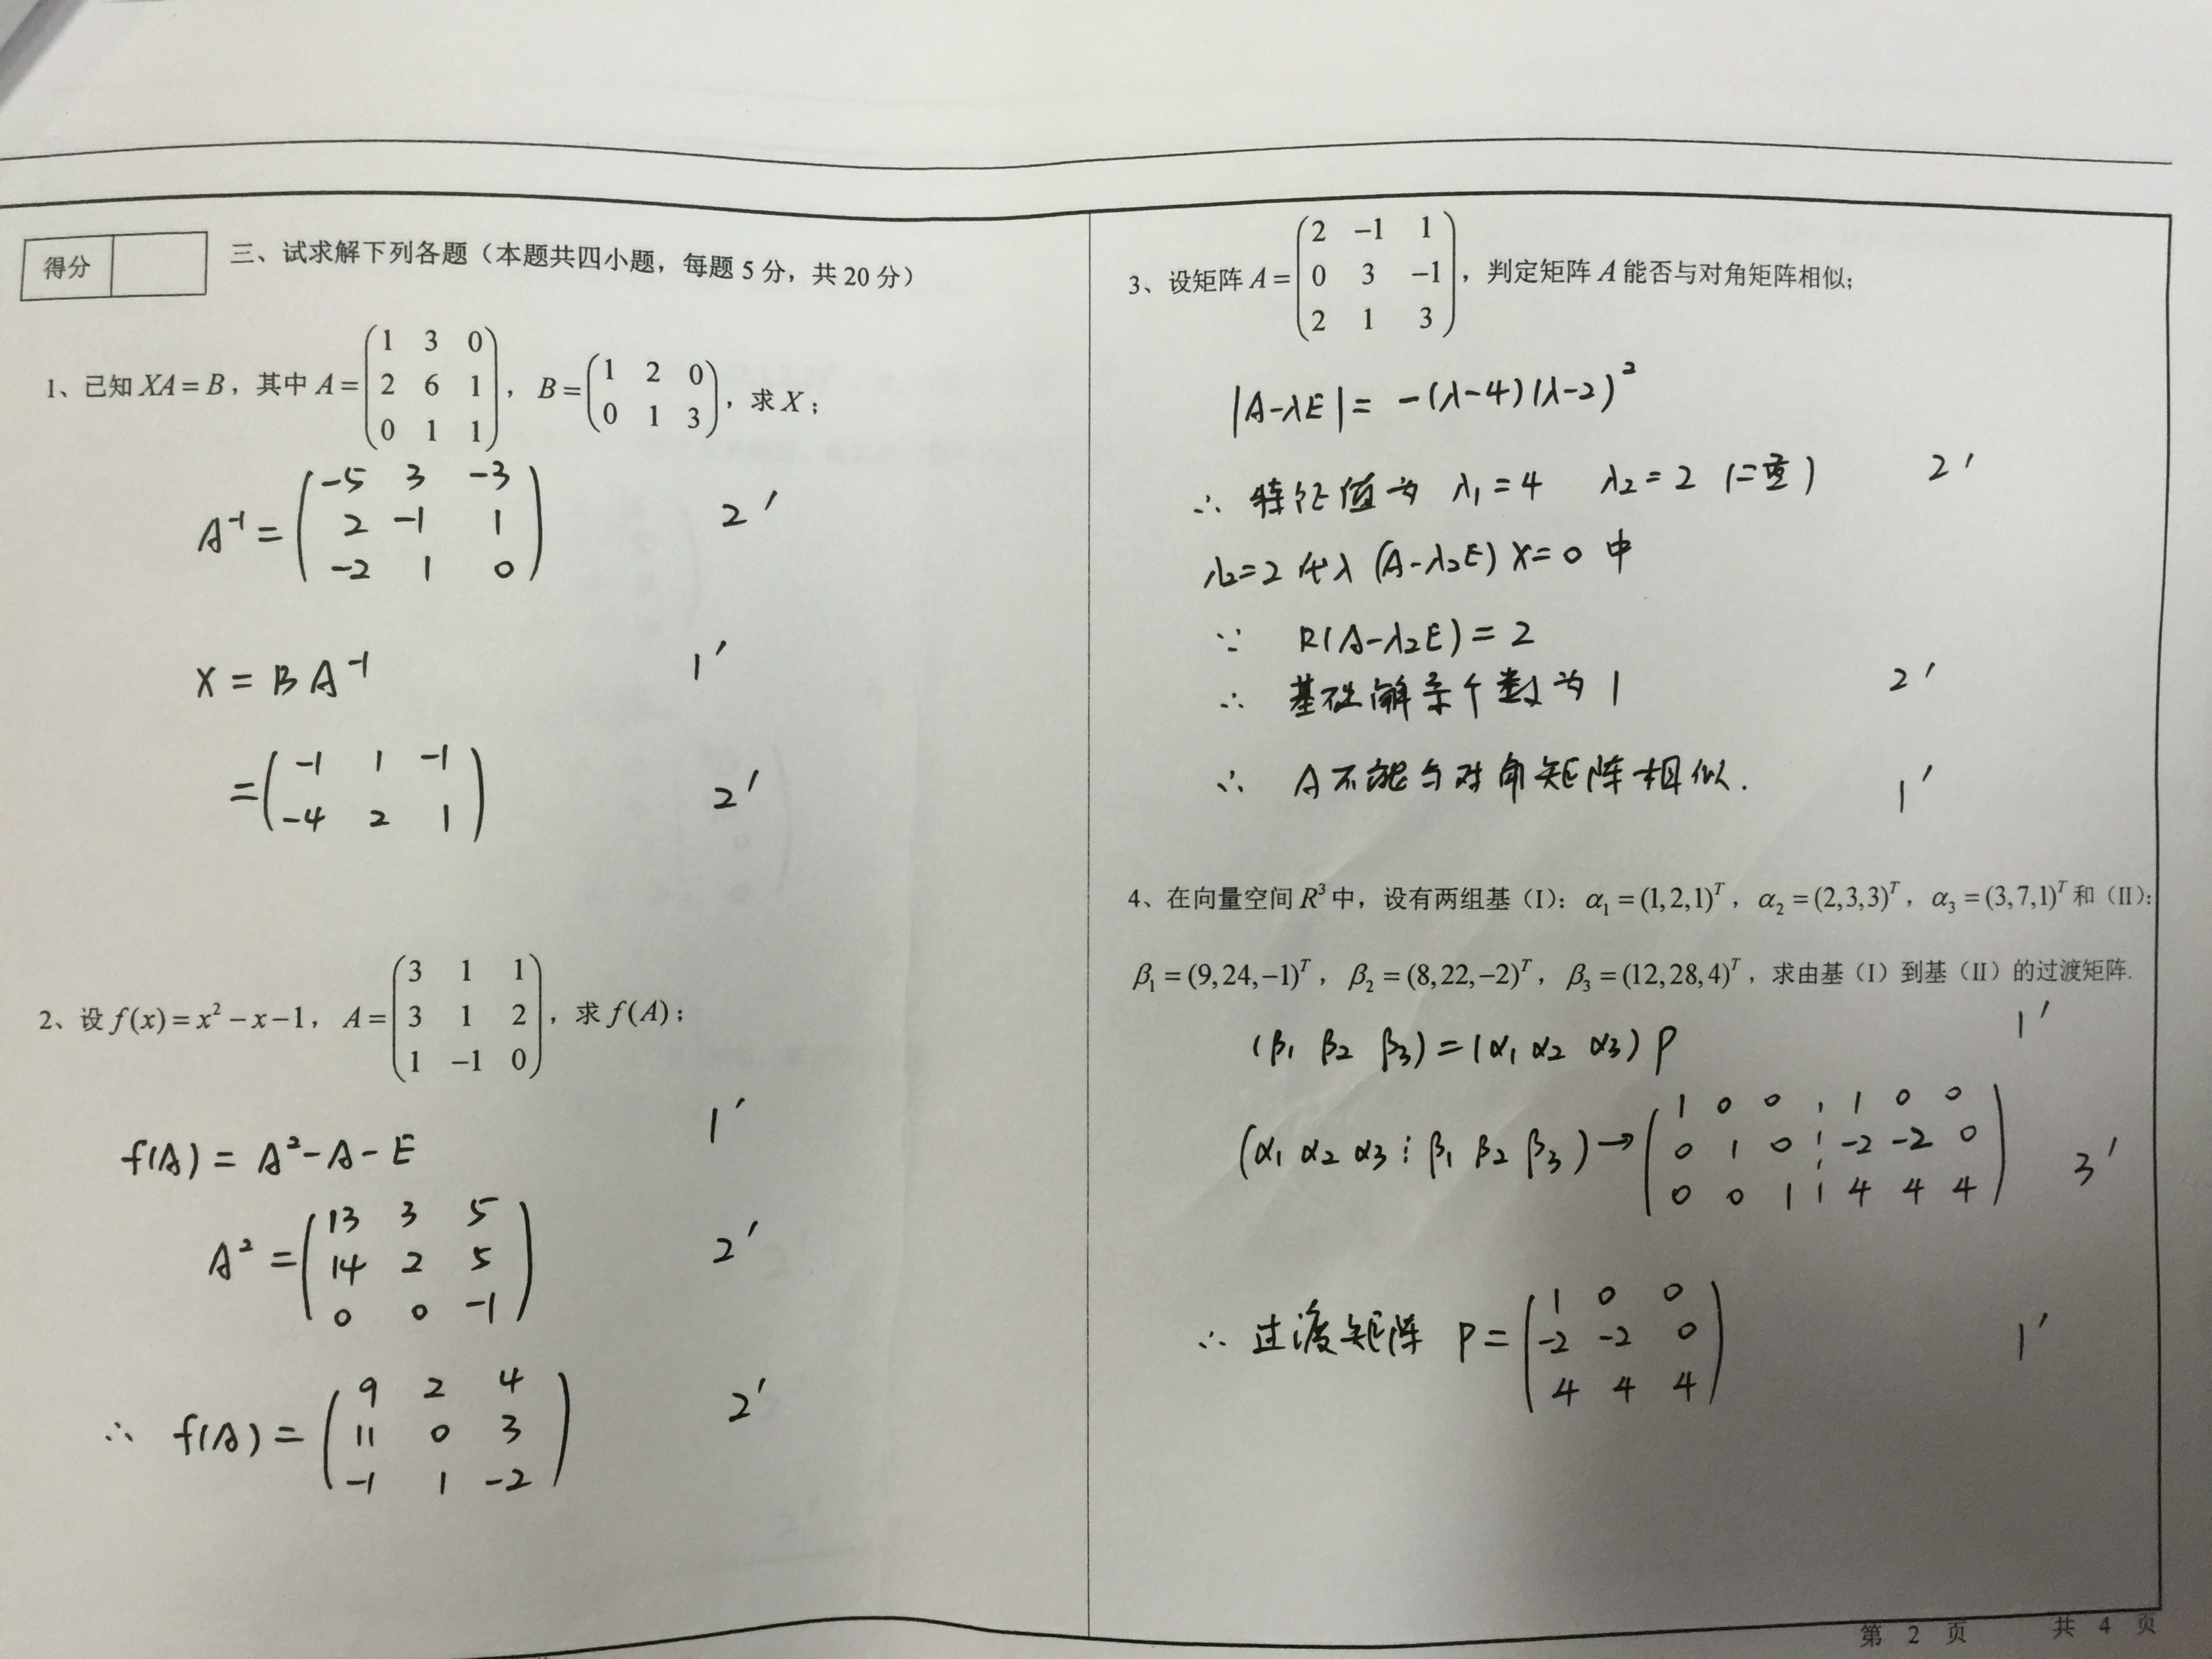 得分
三、试求解下列各题（本题共四小题，每题 5 分，共 20 分）
1、已知 XA = B，其中 A = (1 3 0; 2 6 1; 0 1 1)，B = (1 2 0; 0 1 3)，求 X；
A⁻¹ = (-5 3 -3; 2 -1 1; -2 1 0) 2′
X = B A⁻¹ 1′
= (-1 1 -1; -4 2 1) 2′
2、设 f(x) = x² − x − 1，A = (3 1 1; 3 1 2; 1 −1 0)，求 f(A)；
f(A) = A² - A - E 1′
A² = (13 3 5; 14 2 5; 0 0 -1) 2′
∴ f(A) = (9 2 4; 11 0 3; -1 1 -2) 2′
3、设矩阵 A = (2 −1 1; 0 3 −1; 2 1 3)，判定矩阵 A 能否与对角矩阵相似；
|A-λE| = -(λ-4)(λ-2)²
∴ 特征值为 λ₁=4 λ₂=2 (二重) 2′
λ₂=2 代入 (A-λ₂E) X=0 中
∵ R(A-λ₂E) = 2
∴ 基础解系个数为 1 2′
∴ A不能与对角矩阵相似. 1′
4、在向量空间 R³ 中，设有两组基（I）：α₁ = (1,2,1)ᵀ，α₂ = (2,3,3)ᵀ，α₃ = (3,7,1)ᵀ 和（II）：
β₁ = (9,24,−1)ᵀ，β₂ = (8,22,−2)ᵀ，β₃ = (12,28,4)ᵀ，求由基（I）到基（II）的过渡矩阵.
(β₁ β₂ β₃) = (α₁ α₂ α₃) P 1′
(α₁ α₂ α₃ ⋮ β₁ β₂ β₃) → (1 0 0 ⋮ 1 0 0; 0 1 0 ⋮ -2 -2 0; 0 0 1 ⋮ 4 4 4) 3′
∴ 过渡矩阵 P = (1 0 0; -2 -2 0; 4 4 4) 1′
第 2 页 共 4 页